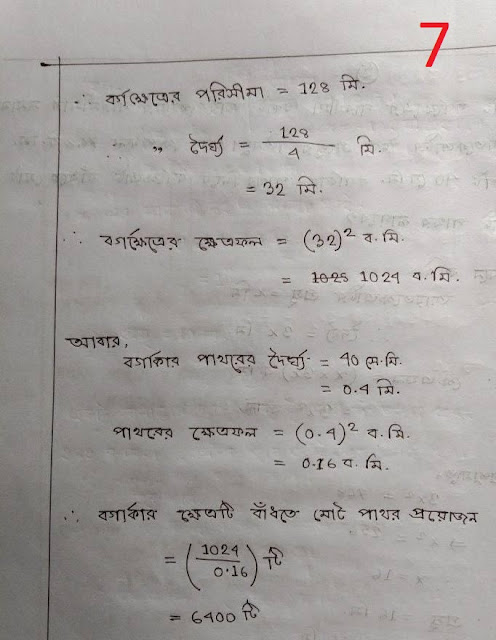 7
∴ বর্গক্ষেত্রের পরিসীমা = 128 মি.
∴ ,, দৈর্ঘ্য = 128/4 মি.
= 32 মি.
∴ বর্গক্ষেত্রের ক্ষেত্রফল = (32)² ব.মি.
= 1025 1024 ব.মি.
আবার,
বর্গাকার পাথরের দৈর্ঘ্য = 40 সে.মি.
= 0.4 মি.
পাথরের ক্ষেত্রফল = (0.4)² ব.মি.
= 0.16 ব.মি.
∴ বর্গাকার ক্ষেত্রটি বাঁধতে মোট পাথর প্রয়োজন
= (1024/0.16) টি
= 6400 টি